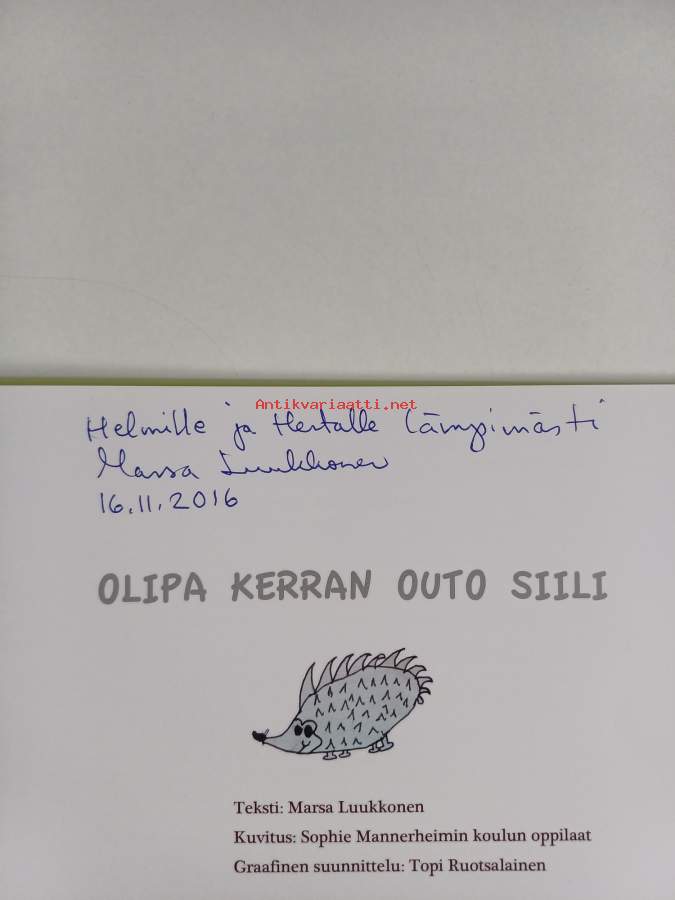 Antikvariaatti.net
Helmille ja Hertalle lämpimästi
Marsa Luukkonen
16.11.2016
OLIPA KERRAN OUTO SIILI
Teksti: Marsa Luukkonen
Kuvitus: Sophie Mannerheimin koulun oppilaat
Graafinen suunnittelu: Topi Ruotsalainen